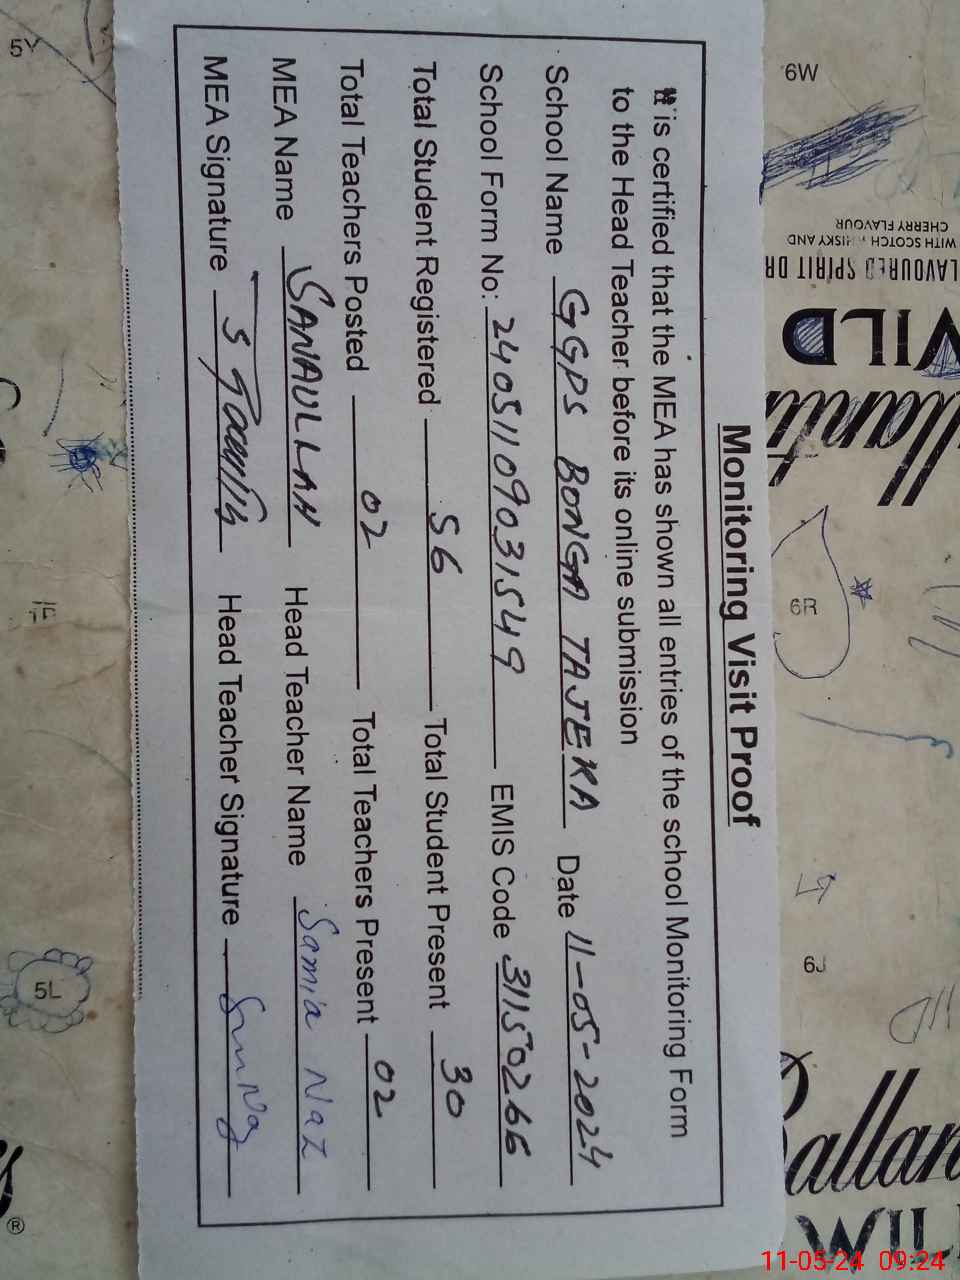 Monitoring Visit Proof
It is certified that the MEA has shown all entries of the school Monitoring Form
to the Head Teacher before its online submission
School Name GGPS BONGA TAJERA Date 11-05-2024
School Form No: 24051109031549 EMIS Code 31150266
Total Student Registered 56 Total Student Present 30
Total Teachers Posted 02 Total Teachers Present 02
MEA Name SANAULLAH Head Teacher Name Samia Naz
MEA Signature Head Teacher Signature
6W
WITH SCOTCH WHISKY AND
CHERRY FLAVOUR
WILD
6R
6J
5Y
5L
Ballan
WIL
®
11-05-24 09:24